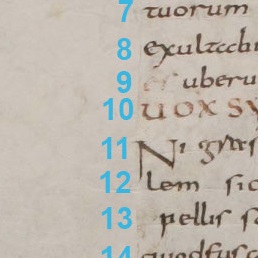 7 tuorum
8 exultabi
9 et uberu
10 UOX SY
11 Ni
12 lem sic
13 pellis
14